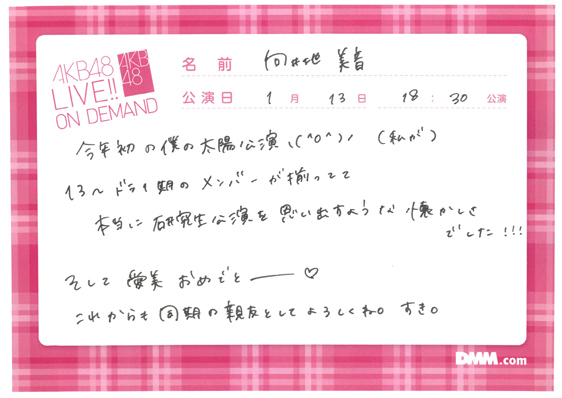 AKB48
LIVE!!
ON DEMAND
AKB
48
名 前 向井地 美音
公演日 1月 13日 18:30 公演
今年初の僕の太陽公演\(^o^)/ (私が)
13〜ドラ1期のメンバーが揃ってて
本当に研究生公演を思い出すような懐かしさ
でした!!!
そして 愛美 おめでと――♡
これからも同期の親友としてよろしくね。すき。
DMM.com